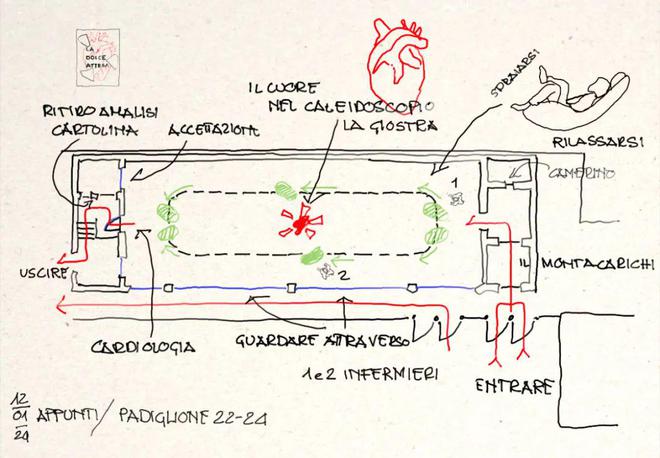 LA
DOLCE
ATTESA
IL CUORE
NEL CALEIDOSCOPIO
LA GIOSTRA
SDRAIARSI
RILASSARSI
RITIRO ANALISI
CARTOLINA
ACCETTAZIONE
CAMERINO
1
USCIRE
2
MONTACARICHI
CARDIOLOGIA
GUARDARE ATTRAVERSO
1e2 INFERMIERI
ENTRARE
12
01
24
APPUNTI/ PADIGLIONE 22-24